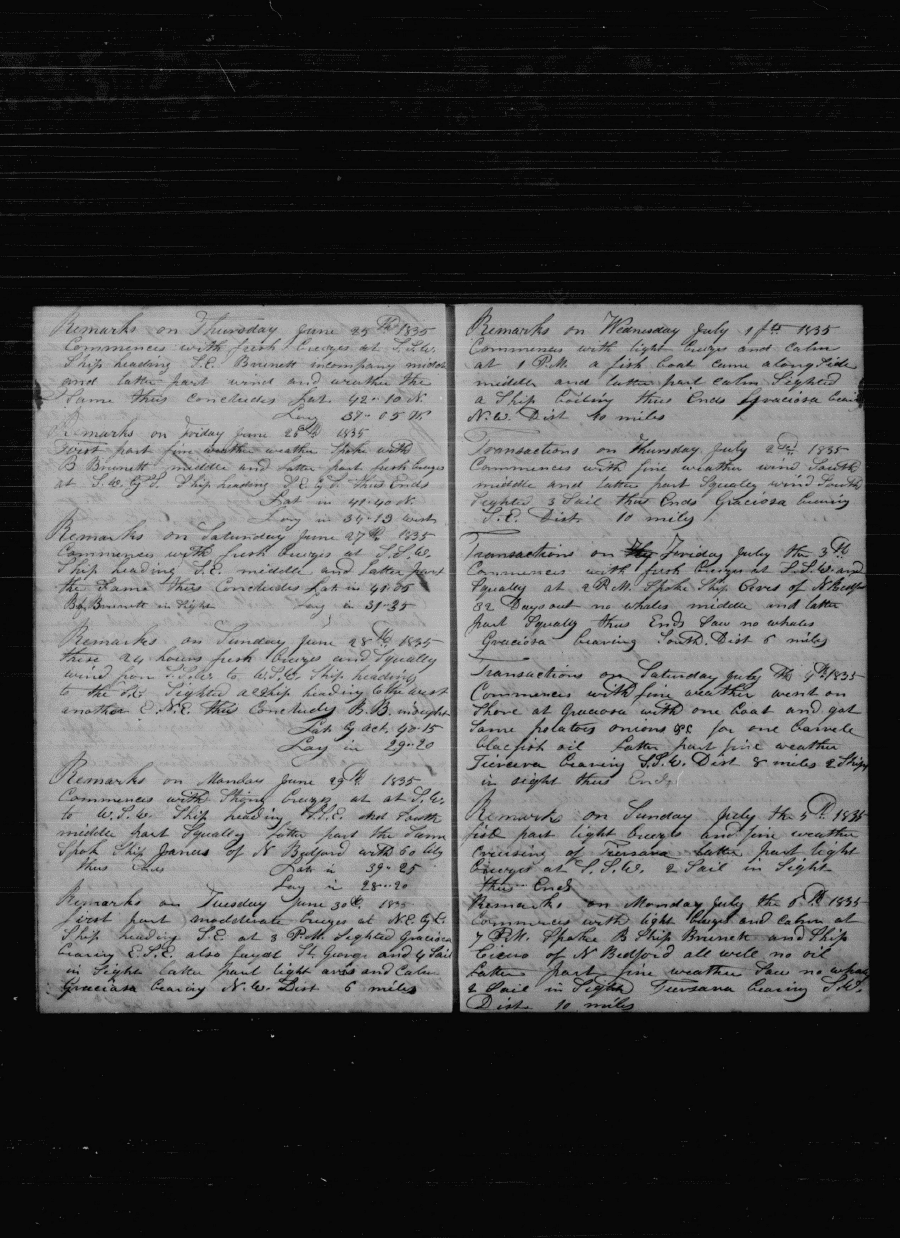 Remarks on Thursday June 25th 1835
Commences with fresh breezes at S.S.W.
Ship heading S.E. Brunett incompany middle
and latter part wind and weather the
Same thus concludes Lat 42-10 N
Long 37-05 W
Remarks on Friday June 26th 1835
First part fine weather weather Spoke with
B Brunett middle and latter part fresh breezes
at S.W. by S. Ship heading S.E. by S. thus Ends
Lat in 41-40 N.
Long in 34-13 west
Remarks on Saturday June 27th 1835
Commences with fresh breezes at S.S.W.
Ship heading S.E. middle and latter part
the Same thus Concludes Lat in 41-05
B Brunett in Sight Long in 31-35
Remarks on Sunday June 28th 1835
these 24 hours fresh breezes and Squally
wind from to W.S.W. Ship heading
to the Sighted a Ship heading to the west
another E.N.E. thus Concludes B.B. insight
Lat by act. 40-15
Long in 29-20
Remarks on Monday June 29th 1835
Commences with Strong breezes at at S.W.
to W.S.W. Ship heading S.S.E. and South
middle part Squally latter part the Same
Spok Ship Janus of N Bedford with 60 bbls
thus Ends Lat in 39-25
Long in 28-20
Remarks on Tuesday June 30th 1835
First part moderate breezes at N.E. by E.
Ship heading S.E. at 3 P.M. Sighted Graciosa
bearing E.S.E. also St. George and 4 Sail
in Sight latter part light aires and Calm
Graciosa bearing N.W. Dist 6 miles
Remarks on Wednesday July 1st 1835
Commences with light breezes and Calm
at 1 P.M. a fish boat came along Side
middle and latter part Calm Sighted
a Ship boiling thus Ends Graciosa bearing
N.W. Dist 10 miles
Transactions on Thursday July 2nd 1835
Commences with fine weather wind South
middle and latter part Squally wind South
Sighted 3 Sail thus Ends Graciosa bearing
S.E. Dist 10 miles
Transactions on Friday July the 3th
Commences with fresh breezes at S.S.W. and
Squally at 2 P.M. Spoke Ship Ceres of N Bedford
32 Days out no whales middle and latter
part Squally thus Ends Saw no whales
Graciosa bearing South. Dist 6 miles
Transactions on Saturday July th 4th 1835
Commences with fine weather went on
Shore at Graciosa with one boat and got
Some potatoes onions &c for one barrele
blackfish oil latter part fine weather
Terceira bearing S.S.W. Dist 8 miles 2 Ships
in sight thus Ends
Remark on Sunday July the 5th 1835
first part light breezes and fine weather
cruising of Tersara latter part light
breezes at S.S.W. 2 Sail in Sight
thus Ends
Remarks on Monday July the 6th 1835
Commences with light breezes and Calm at
7 P.M. Spoke B Ship Brunett and Ship
Cicero of N Bedford all well no oil
Latter part fine weather Saw no whales
2 Sail in Sight Tersara bearing S.W.
Dist 10 miles